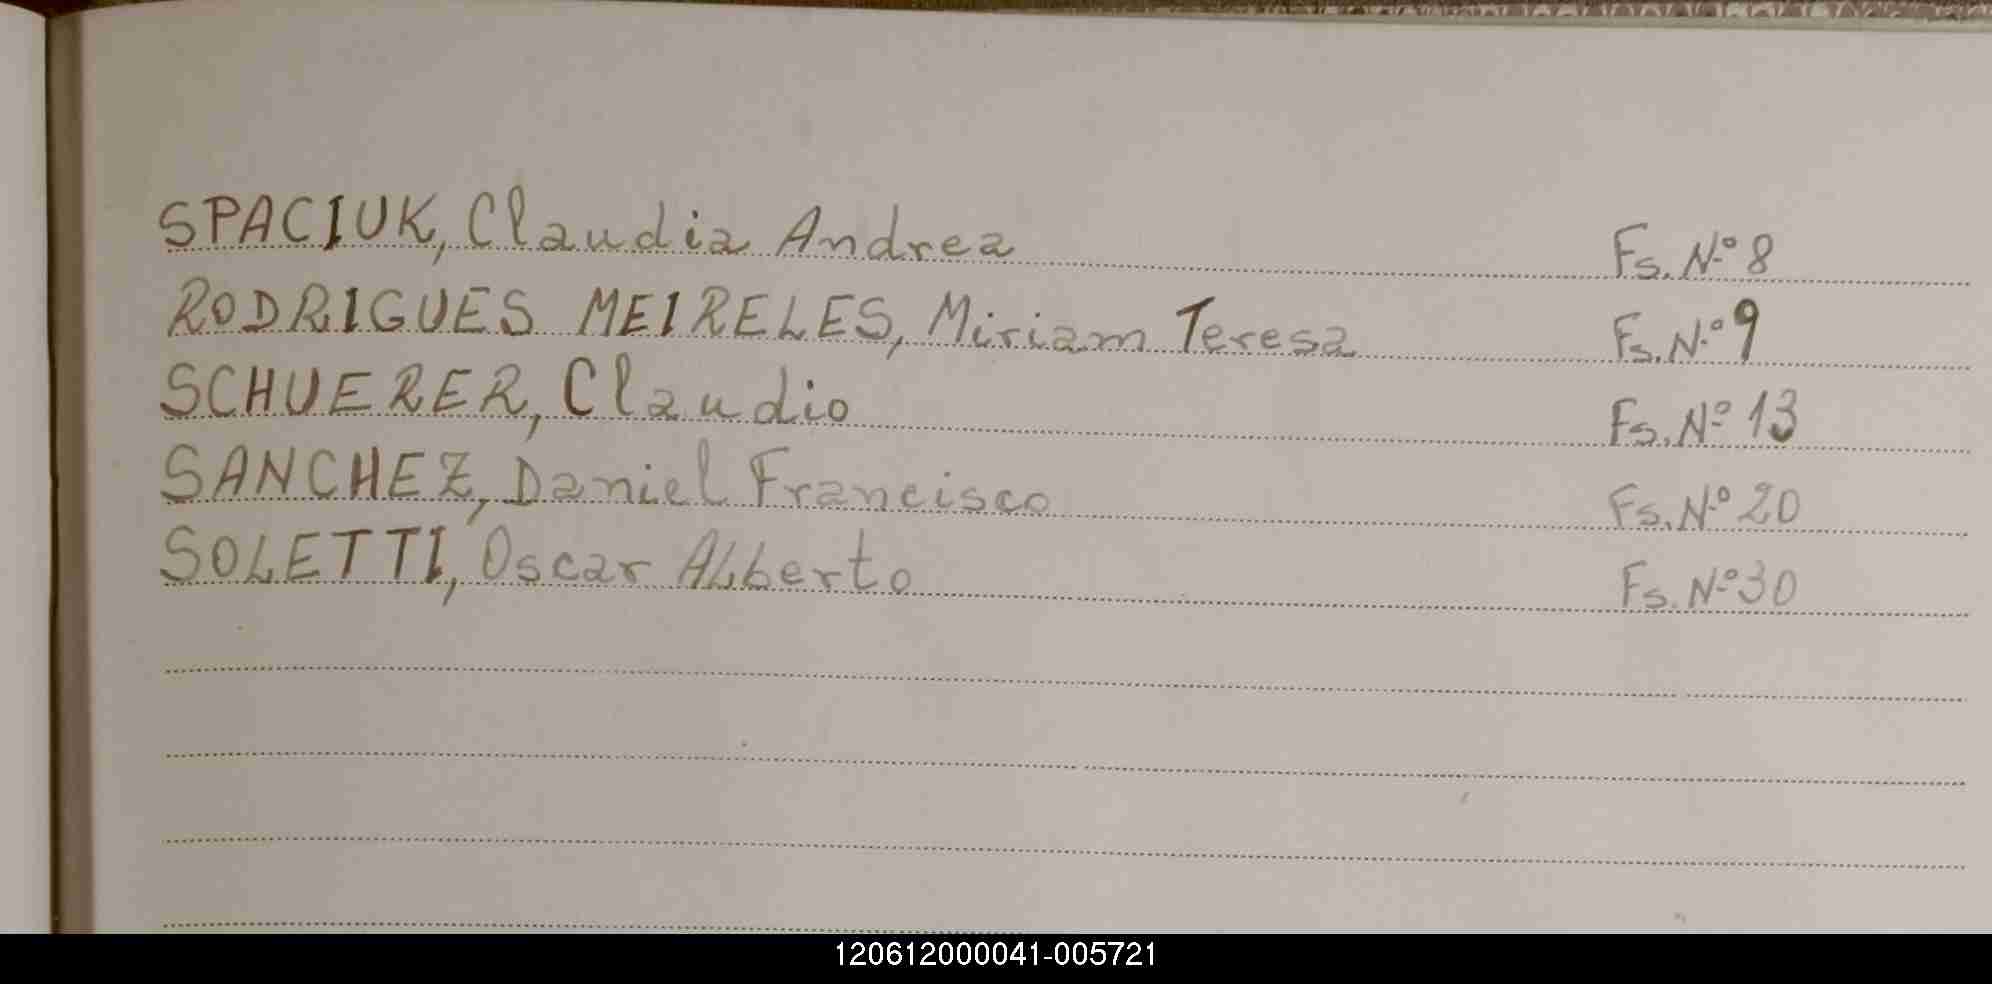 SPACIUK, Claudia Andrea Fs. Nº 8
RODRIGUES MEIRELES, Miriam Teresa Fs. Nº 9
SCHUERER, Claudio Fs. Nº 13
SANCHEZ, Daniel Francisco Fs. Nº 20
SOLETTI, Oscar Alberto Fs. Nº 30
120612000041-005721